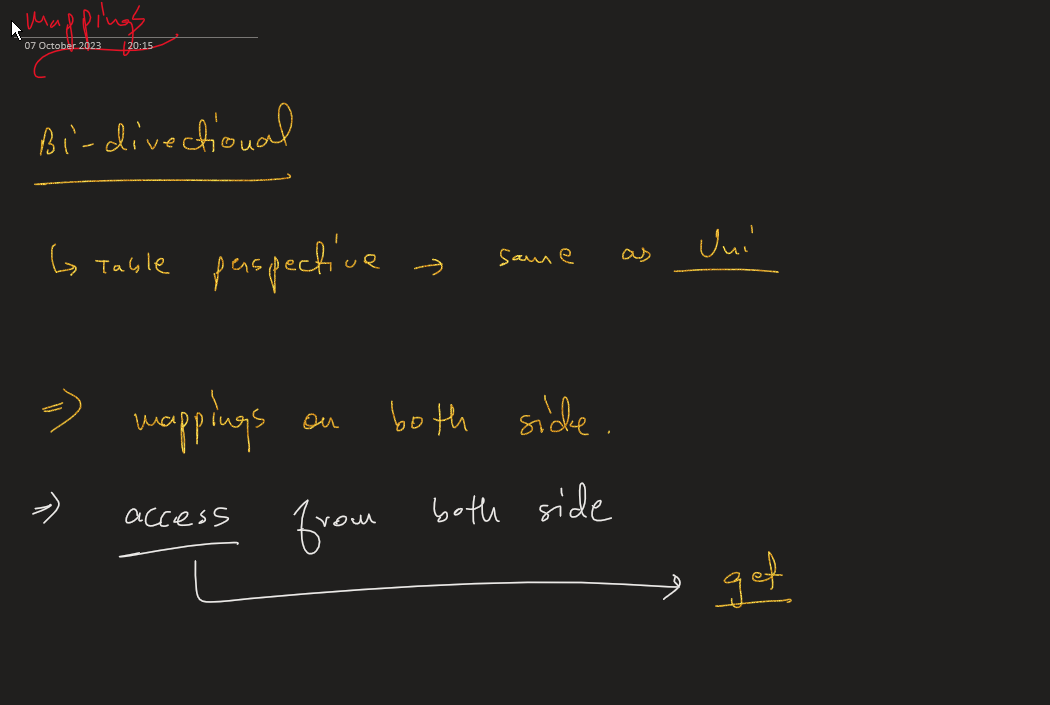 mappings
07 October 2023 20:15
Bi-directional
↳ Table perspective → same as Uni
⇒ mappings on both side.
⇒ access from both side
get